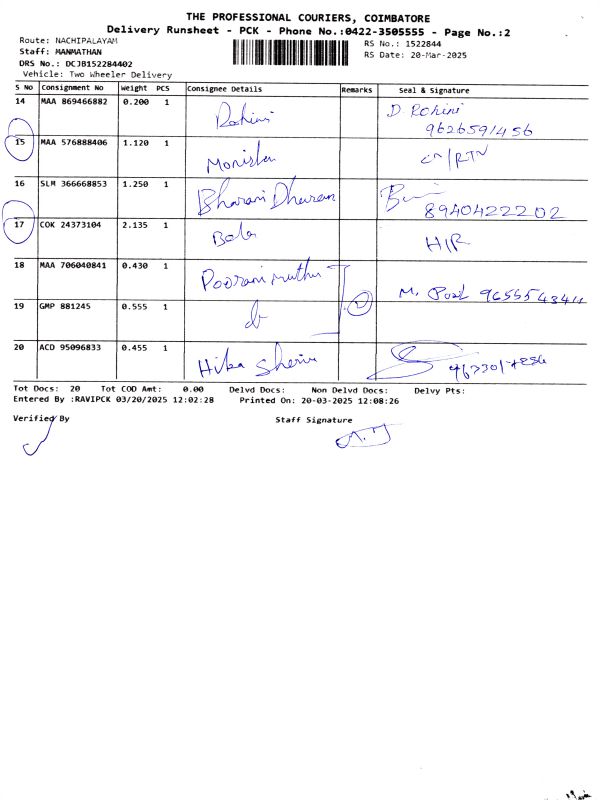 THE PROFESSIONAL COURIERS, COIMBATORE
Delivery Runsheet - PCK - Phone No.:0422-3505555 - Page No.:2
Route: NACHIPALAYAM
RS No.: 1522844
Staff: MANMATHAN
RS Date: 20-Mar-2025
DRS No.: DCJB152284402
Vehicle: Two Wheeler Delivery
S No Consignment No Weight PCS Consignee Details Remarks Seal & Signature
14 MAA 869466882 0.200 1 Rohini D. Rohini
9626591456
15 MAA 576888406 1.120 1 Monisha
16 SLM 366668853 1.250 1 Bharani Dharan
8940422202
17 COK 24373104 2.135 1 Bala
18 MAA 706040841 0.430 1 Poorani muthu
19 GMP 881245 0.555 1
20 ACD 95096833 0.455 1
Tot Docs: 20 Tot COD Amt: 0.00 Delvd Docs: Non Delvd Docs: Delvy Pts:
Entered By :RAVIPCK 03/20/2025 12:02:28 Printed On: 20-03-2025 12:08:26
Verified By Staff Signature